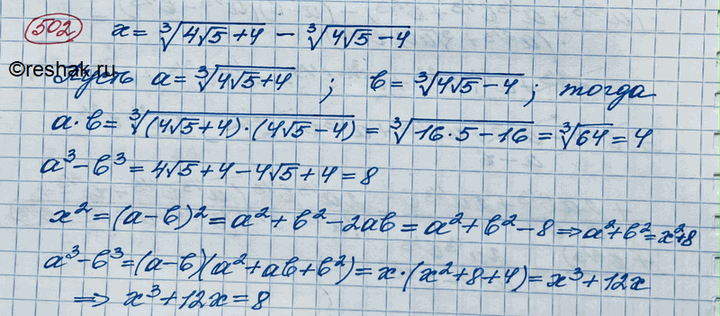 502 x = ∛(4√5+4) − ∛(4√5−4)
©reshak.ru
Пусть a = ∛(4√5+4) ; b = ∛(4√5−4) ; тогда
a·b = ∛((4√5+4)·(4√5−4)) = ∛(16·5−16) = ∛64 = 4
a³−b³ = 4√5+4−4√5+4 = 8
x² = (a−b)² = a²+b²−2ab = a²+b²−8 ⇒ a²+b² = x²+8
a³−b³ = (a−b)(a²+ab+b²) = x·(x²+8+4) = x³+12x
⇒ x³+12x = 8